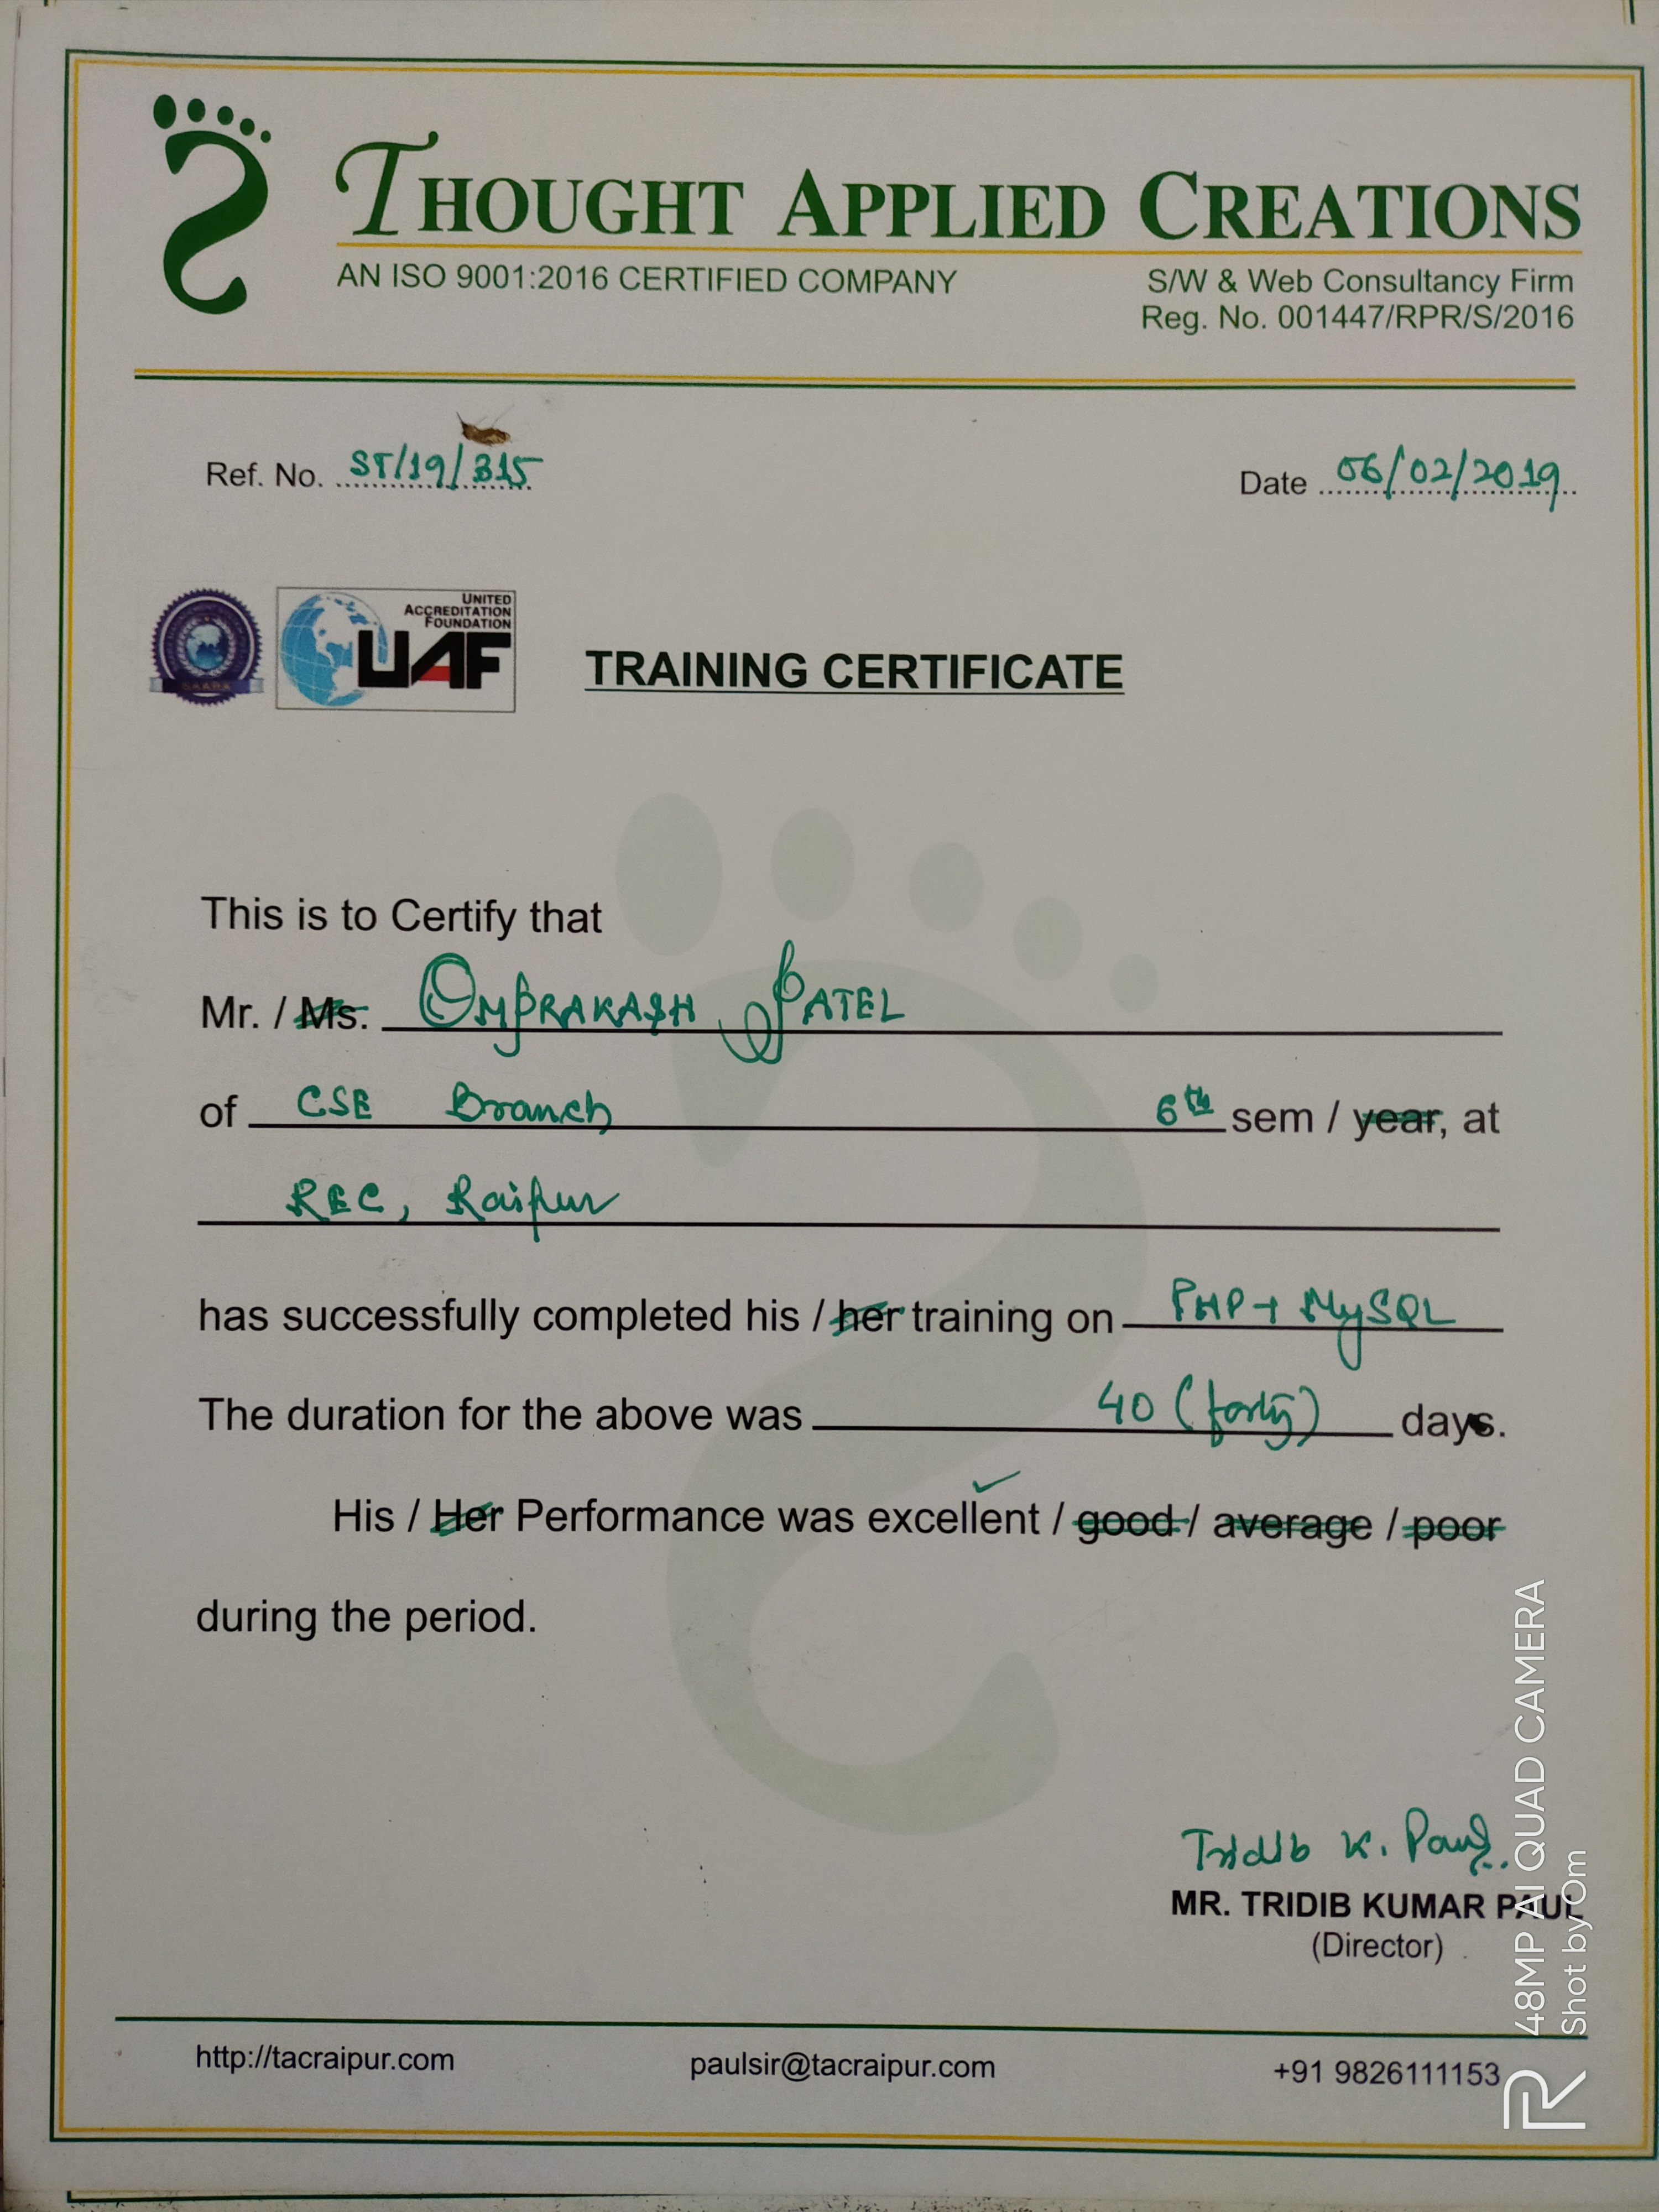 THOUGHT APPLIED CREATIONS
AN ISO 9001:2016 CERTIFIED COMPANY
S/W & Web Consultancy Firm
Reg. No. 001447/RPR/S/2016
Ref. No. ST/19/315
Date 06/02/2019
UNITED
ACCREDITATION
FOUNDATION
UAF
TRAINING CERTIFICATE
This is to Certify that
Mr. / Ms. OMPRAKASH PATEL
of CSE Branch 6th sem / year, at
REC, Raipur
has successfully completed his / her training on PHP + MySQL
The duration for the above was 40 (forty) days.
His / Her Performance was excellent / good / average / poor
during the period.
Tridib K. Paul
MR. TRIDIB KUMAR PAUL
(Director)
http://tacraipur.com
paulsir@tacraipur.com
+91 9826111153
48MP AI QUAD CAMERA
Shot by Om